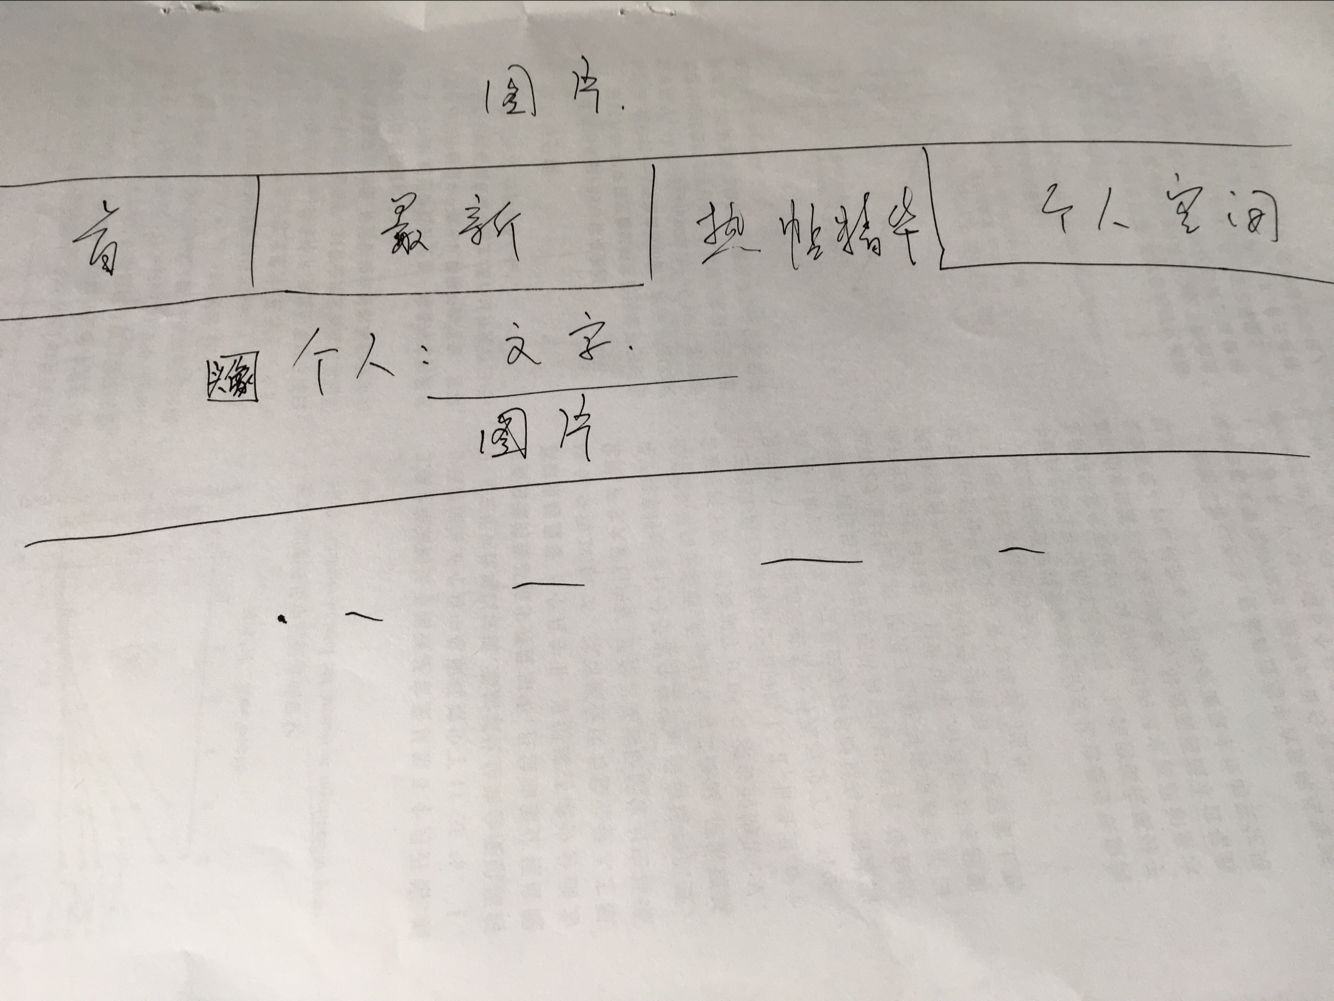 图片.
首 最新 热帖精华 个人空间
头像 个人: 文字.
图片